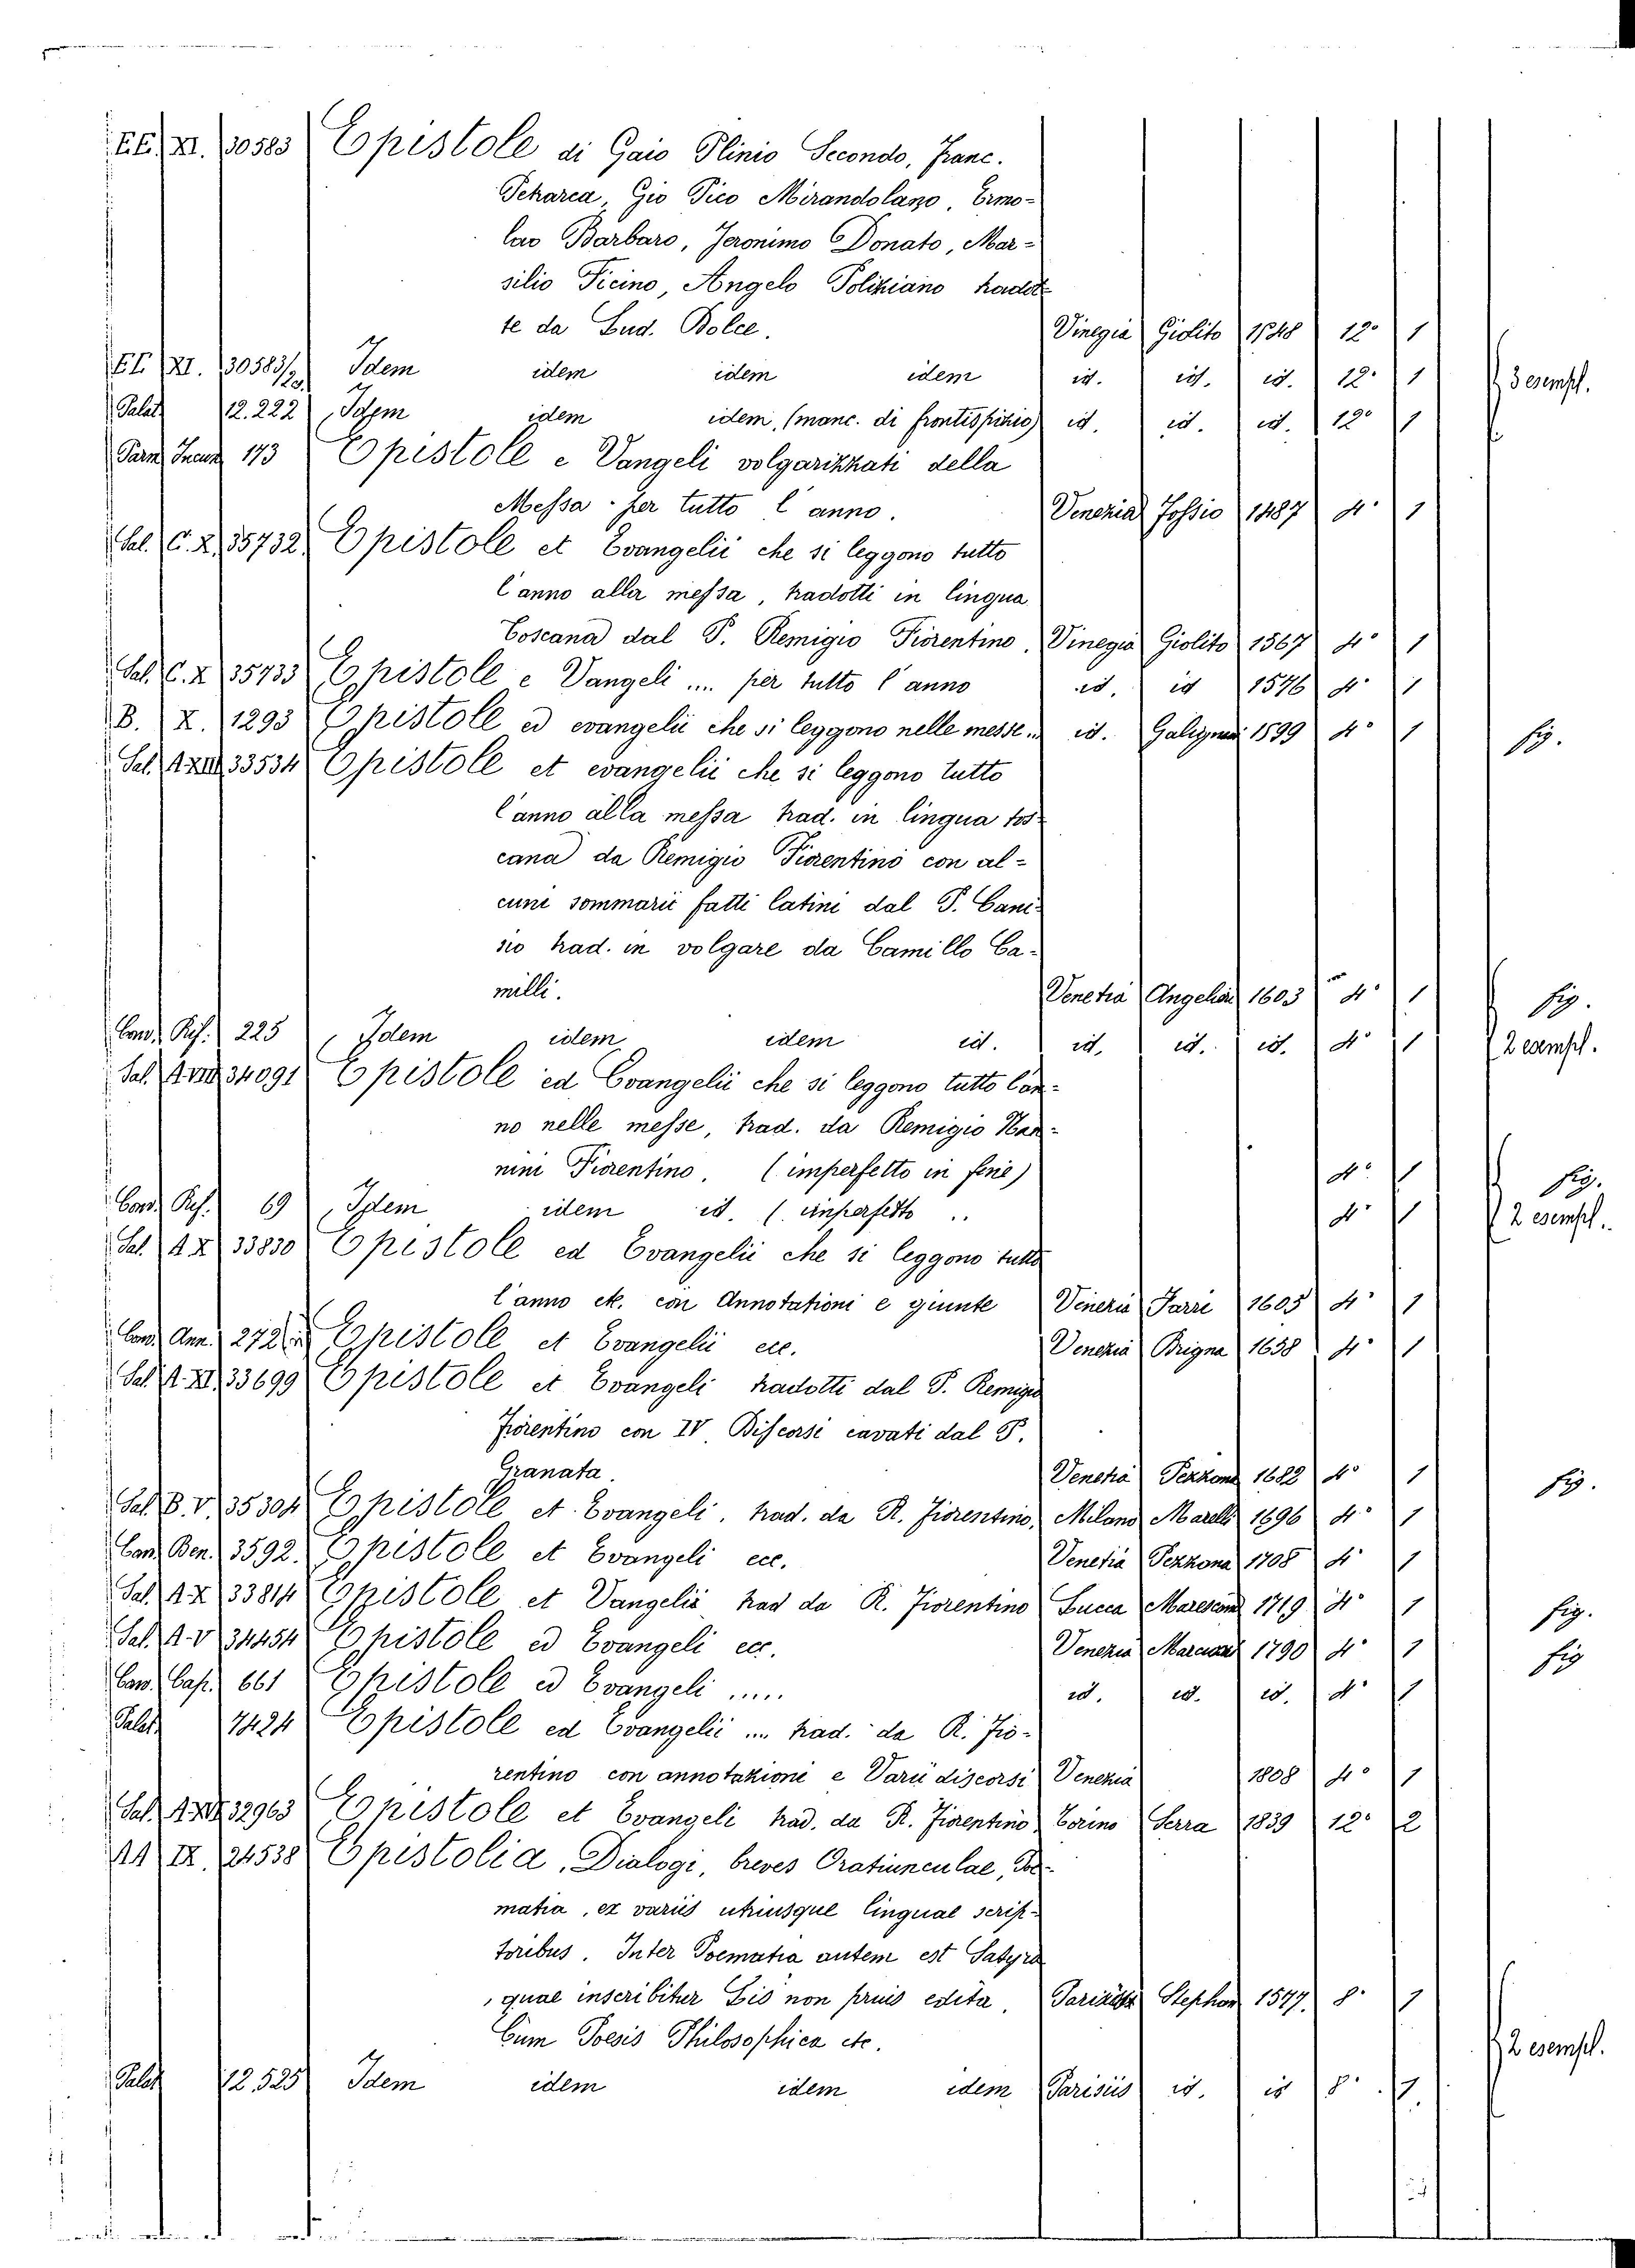 EE. XI. 30583 Epistole di Gaio Plinio Secondo, Franc.
Petrarca, Gio Pico Mirandolano, Ermo-
lao Barbaro, Jeronimo Donato, Mar-
silio Ficino, Angelo Poliziano tradot-
te da Lud. Dolce. Vinegia Giolito 1548 12° 1
EE XI. 30583/ Idem idem idem idem id. id. id. 12° 1 3 esempl.
Palat 12.222 Idem idem idem (manc. di frontispizio) id. id. id. 12° 1
Parm Incun 173 Epistole e Vangeli volgarizzati della
Messa - per tutto l'anno. Venezia Fossio 1487 4° 1
Sal. C. X. 35732 Epistole et Evangelii che si leggono tutto
l'anno alla messa, tradotti in lingua
Toscana dal P. Remigio Fiorentino. Vinegia Giolito 1567 4° 1
Sal. C. X 35733 Epistole e Vangeli .... per tutto l'anno id. id 1576 4° 1
B. X. 1293 Epistole ed evangelii che si leggono nelle messe .. id. Galignani 1599 4° 1 fig.
Sal. A XIII 33534 Epistole et evangelii che si leggono tutto
l'anno alla messa trad. in lingua tos-
cana da Remigio Fiorentino con al-
cuni sommarii fatti latini dal P. Cani-
sio trad. in volgare da Camillo Ca-
milli. Venetia Angelieri 1603 4° 1 fig.
Conv. Rif. 225 Idem idem idem id. id. id. id. 4° 1 2 esempl.
Sal. A VIII 34091 Epistole ed Evangelii che si leggono tutto l'an-
no nelle messe, trad. da Remigio Nan-
nini Fiorentino. (imperfetto in fine) 4° 1 fig.
Conv. Rif. 69 Idem idem id. (imperfetto .. 4° 1 2 esempl.
Sal. A X 33830 Epistole ed Evangelii che si leggono tutto
l'anno etc. con Annotationi e giunte Venezia Farri 1605 4° 1
Conv. Ann. 272 Epistole et Evangelii ecc. Venezia Brigna 1658 4° 1
Sal. A. XI. 33699 Epistole et Evangeli tradotti dal P. Remigio
Fiorentino con IV Discorsi cavati dal P.
Granata. Venetia Pezzona 1682 4° 1 fig.
Sal. B. V. 35304 Epistole et Evangeli. trad. da R. Fiorentino. Milano Marelli 1696 4° 1
Conv. Ben. 3592. Epistole et Evangeli ecc. Venetia Pezzona 1708 4° 1
Sal. A X 33814 Epistole et Vangelii trad da R. Fiorentino Lucca Marescand 1719 4° 1 fig.
Sal. A. V 34454 Epistole ed Evangeli ecc. Venezia 1790 4° 1 fig
Conv. Cap. 661 Epistole ed Evangeli ..... id. id. id. 4° 1
Palat. 7424 Epistole ed Evangelii .... trad. da R. Fio-
rentino con annotazioni e Varii discorsi Venezia 1808 4° 1
Sal. 32963 Epistole et Evangeli trad. da R. Fiorentino Torino Serra 1839 12° 2
AA IX. 24538 Epistolia, Dialogi, breves Oratiunculae, Poe-
matia, ex variis utriusque linguae scrip-
toribus. Inter Poematia autem est Satyra
quae inscribitur Lis non prius edita. Stephan 1577. 8° 1
Cum Poesis Philosophica etc.
2 esempl.
Palat 12.525 Idem idem idem idem Parisiis id. id 8° 1.